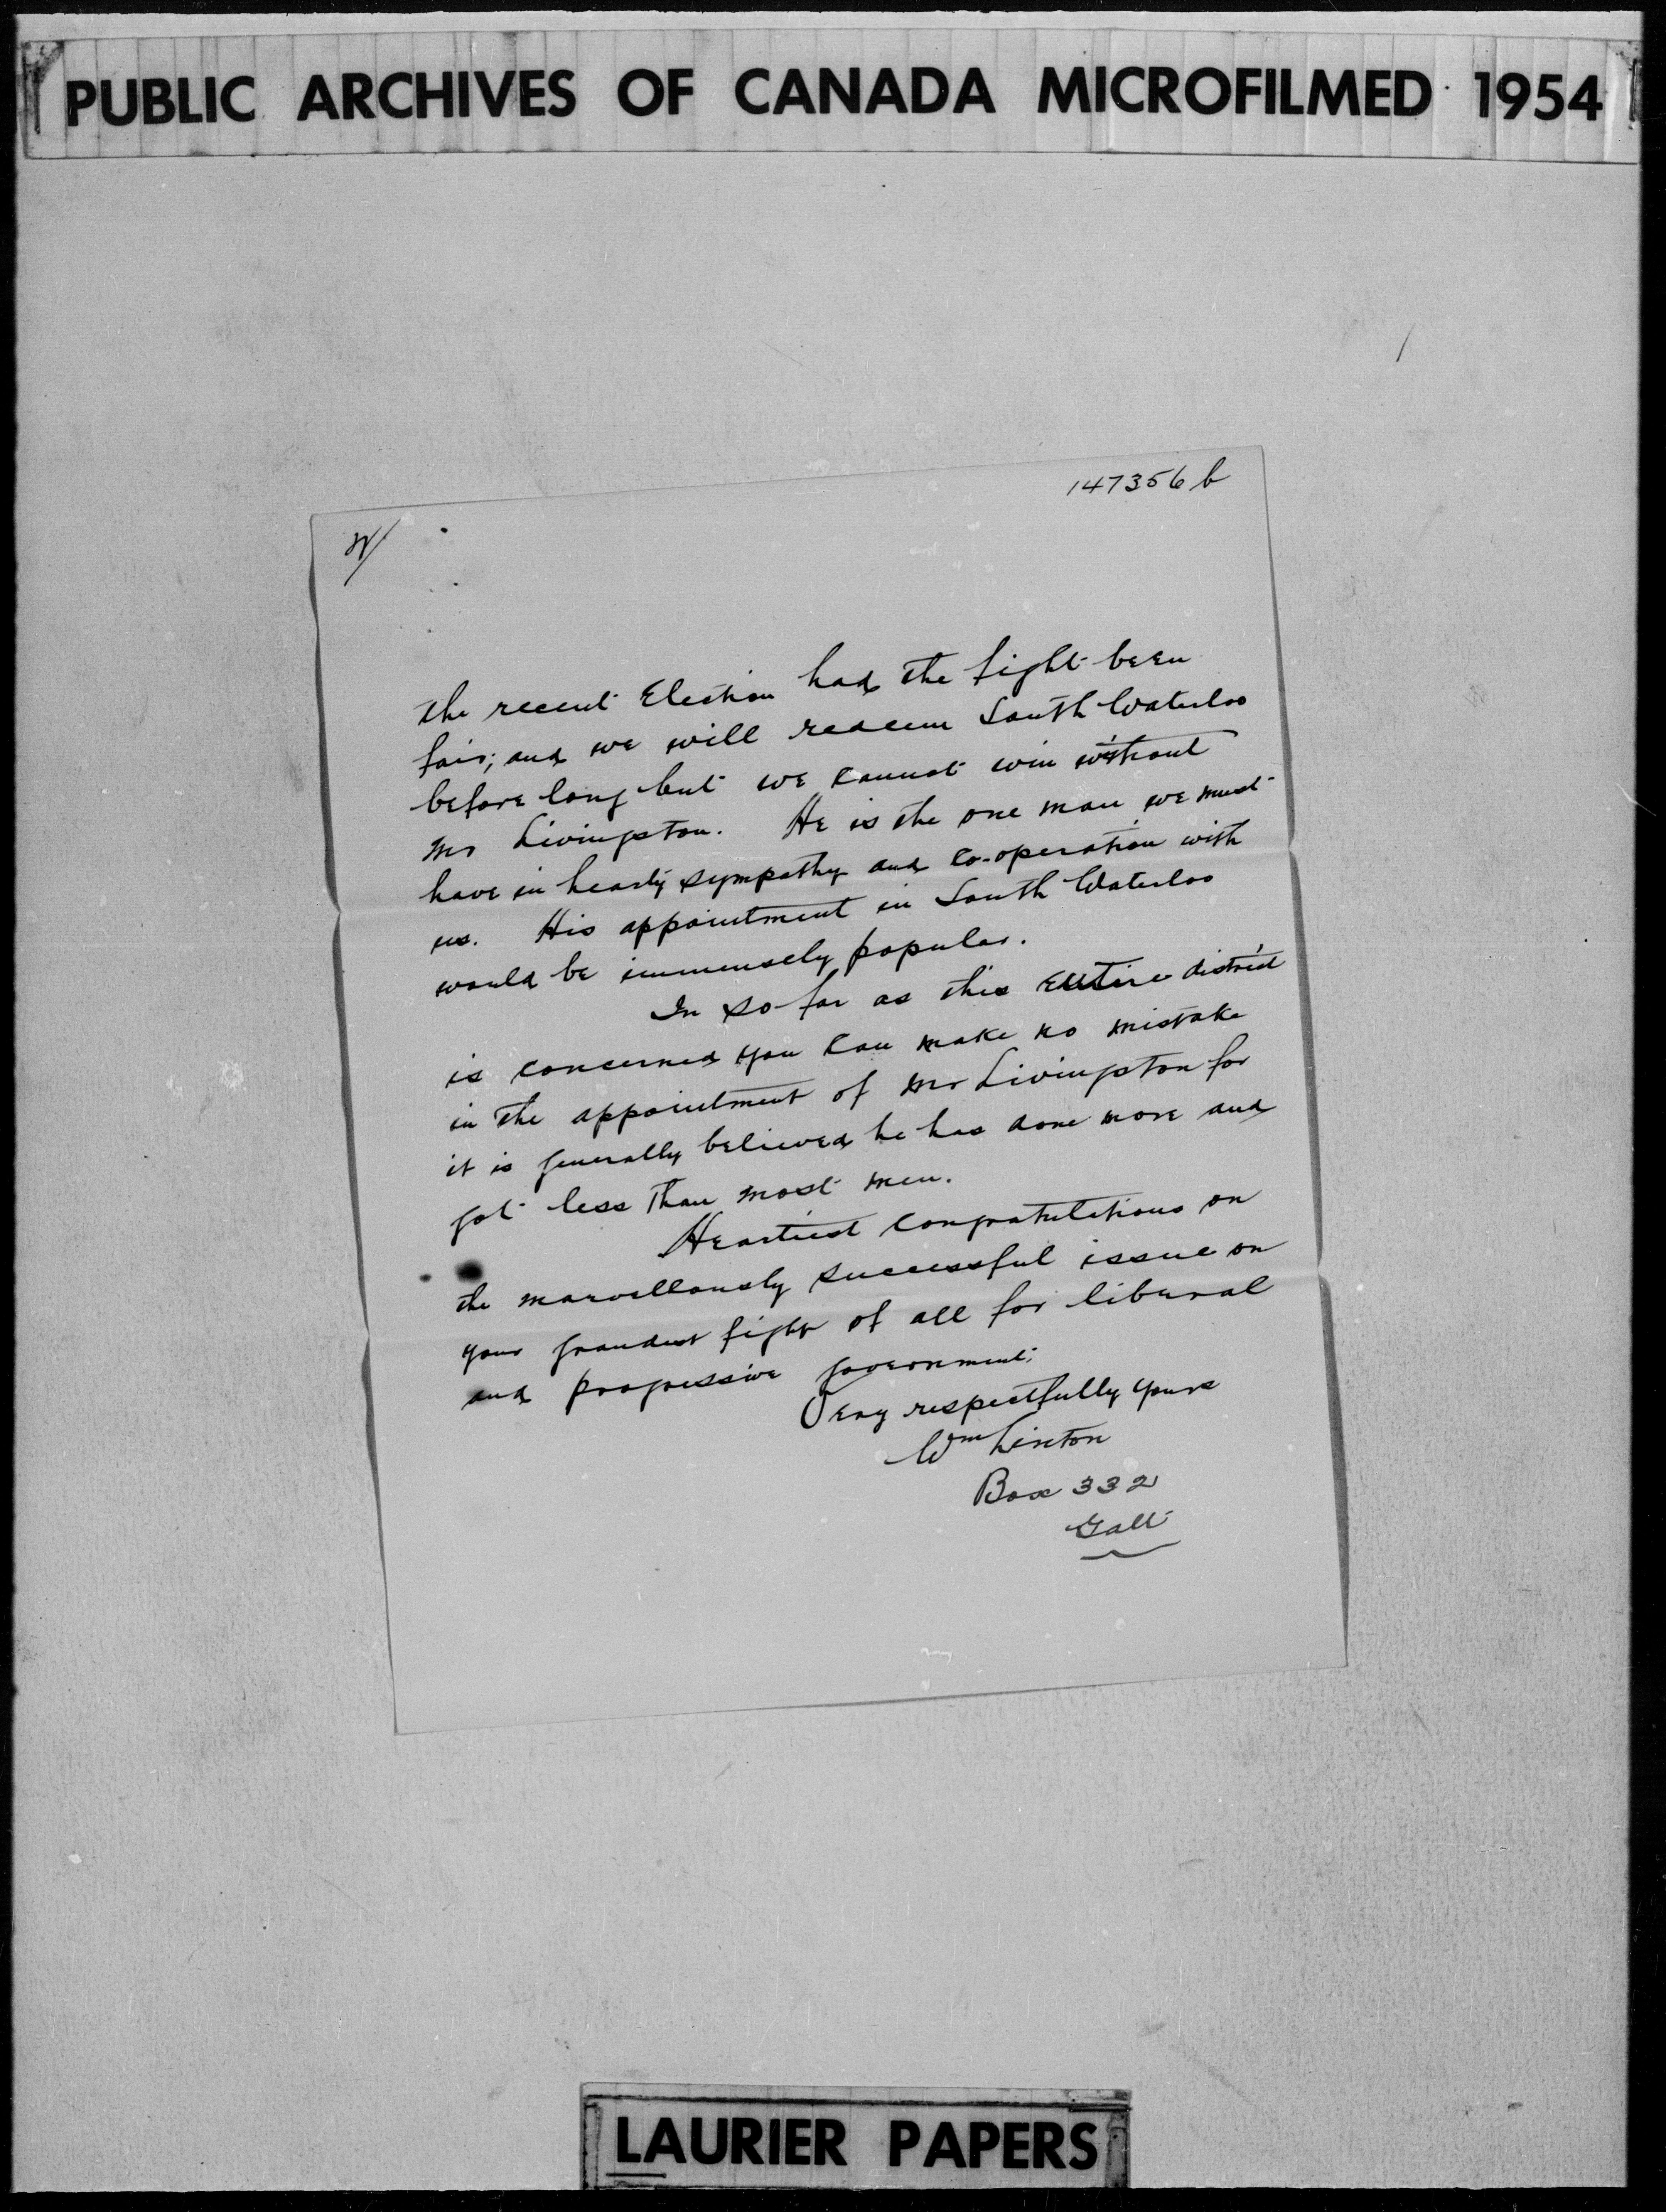 PUBLIC ARCHIVES OF CANADA MICROFILMED 1954
147356 b
the recent Election had the fight been
fair; and we will redeem South Waterloo
before long but we cannot win without
Mr Livingston. He is the one man we must
have in hearty sympathy and co-operation with
us. His appointment in South Waterloo
would be immensely popular.
In so far as this entire district
is concerned you can make no mistake
in the appointment of Mr Livingston for
it is generally believed he has done more and
got less than most men.
Heartiest congratulations on
the marvellously successful issue on
your grandest fight of all for liberal
and progressive government.
Very respectfully yours
Wm Linton
Box 332
Galt
LAURIER PAPERS